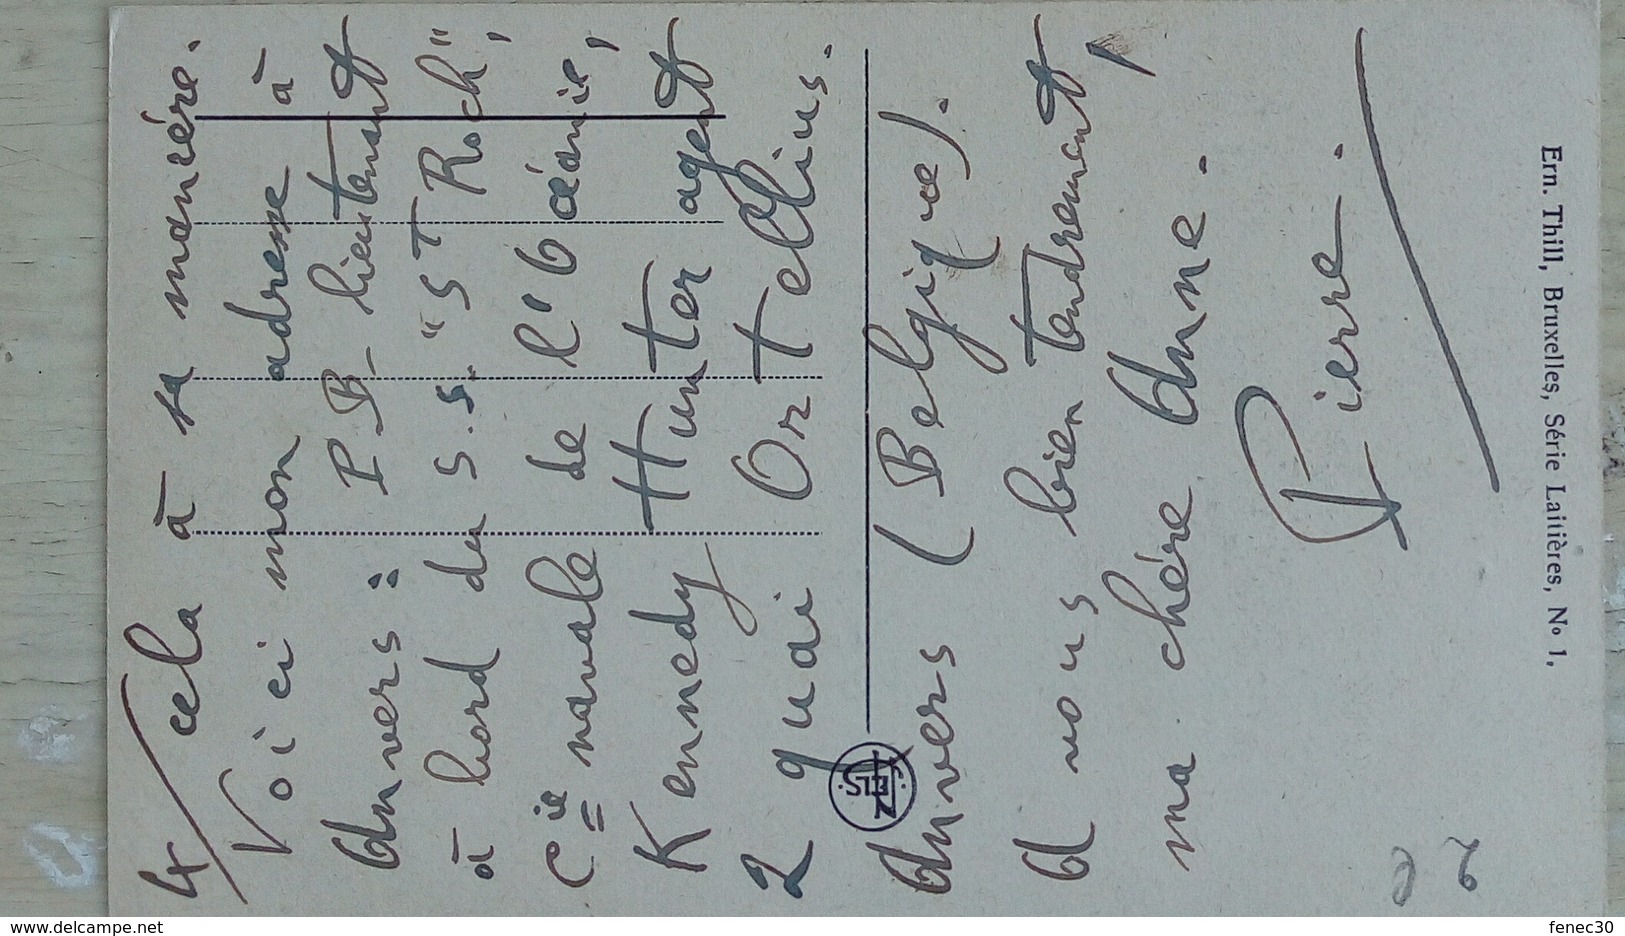 4/ cela à sa manière.
Voici mon adresse à
Anvers : P.B. lieutenant
à bord du S.S. "St Roch",
Cie navale de l'Océanie,
Kennedy Hunter agent
2 quai Ortellius.
Anvers (Belgique).
A vous bien tendrement,
ma chère Anne.
Pierre.
Ern. Thill, Bruxelles, Série Laitières, No 1.
NELS
delcampe.net
fenec30